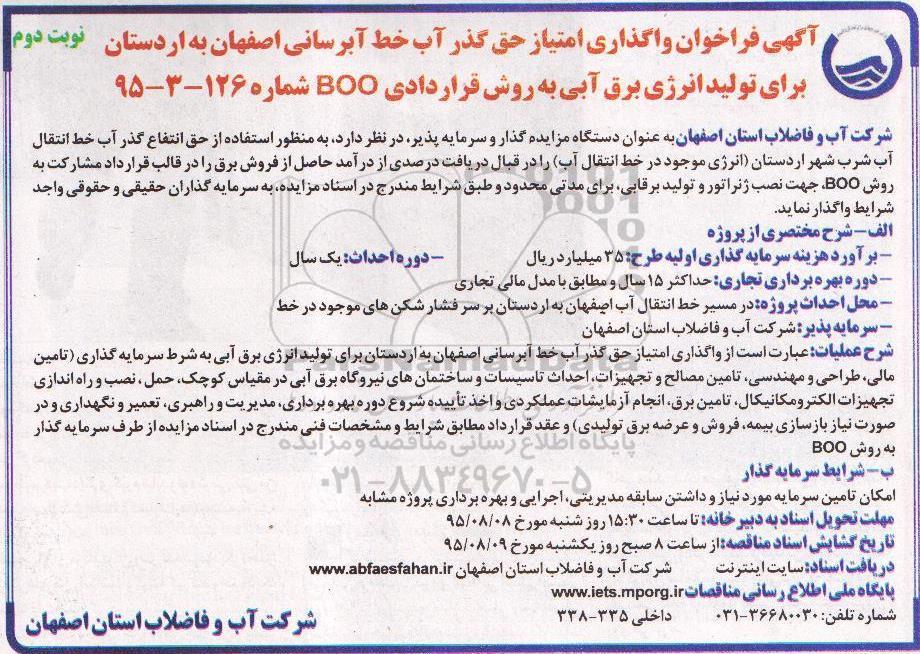 نوبت دوم
آگهی فراخوان واگذاری امتیاز حق گذر آب خط آبرسانی اصفهان به اردستان
برای تولید انرژی برق آبی به روش قراردادی BOO شماره ۱۲۶-۳-۹۵
شرکت آب و فاضلاب استان اصفهان به عنوان دستگاه مزایده گذار و سرمایه پذیر، در نظر دارد، به منظور استفاده از حق انتفاع گذر آب خط انتقال
آب شرب شهر اردستان (انرژی موجود در خط انتقال آب) را در قبال دریافت درصدی از درآمد حاصل از فروش برق را در قالب قرارداد مشارکت به
روش BOO، جهت نصب ژنراتور و تولید برقابی، برای مدتی محدود و طبق شرایط مندرج در اسناد مزایده، به سرمایه گذاران حقیقی و حقوقی واجد
شرایط واگذار نماید.
الف-شرح مختصری از پروژه
-برآورد هزینه سرمایه گذاری اولیه طرح: ۳۵ میلیارد ریال -دوره احداث: یک سال
-دوره بهره برداری تجاری: حداکثر ۱۵ سال و مطابق با مدل مالی تجاری
-محل احداث پروژه: در مسیر خط انتقال آب اصفهان به اردستان بر سر فشار شکن های موجود در خط
-سرمایه پذیر: شرکت آب و فاضلاب استان اصفهان
شرح عملیات: عبارت است از واگذاری امتیاز حق گذر آب خط آبرسانی اصفهان به اردستان برای تولید انرژی برق آبی به شرط سرمایه گذاری (تامین
مالی، طراحی و مهندسی، تامین مصالح و تجهیزات، احداث تاسیسات و ساختمان های نیروگاه برق آبی در مقیاس کوچک، حمل، نصب و راه اندازی
تجهیزات الکترومکانیکال، تامین برق، انجام آزمایشات عملکردی و اخذ تأییدیه شروع دوره بهره برداری، مدیریت و راهبری، تعمیر و نگهداری و در
صورت نیاز بازسازی بیمه، فروش و عرضه برق تولیدی) و عقد قرارداد مطابق شرایط و مشخصات فنی مندرج در اسناد مزایده از طرف سرمایه گذار
به روش BOO
ب-شرایط سرمایه گذار
امکان تامین سرمایه مورد نیاز و داشتن سابقه مدیریتی، اجرایی و بهره برداری پروژه مشابه
مهلت تحویل اسناد به دبیرخانه: تا ساعت ۱۵:۳۰ روز شنبه مورخ ۹۵/۰۸/۰۸
تاریخ گشایش اسناد مناقصه: از ساعت ۸ صبح روز یکشنبه مورخ ۹۵/۰۸/۰۹
دریافت اسناد: سایت اینترنت شرکت آب و فاضلاب استان اصفهان www.abfaesfahan.ir
پایگاه ملی اطلاع رسانی مناقصات www.iets.mporg.ir
شماره تلفن: ۳۶۶۸۰۰۳۰-۰۳۱ داخلی ۳۳۵-۳۳۸
شرکت آب و فاضلاب استان اصفهان
ParsNamadData
پایگاه اطلاع رسانی مناقصه و مزایده
۰۲۱-۸۸۳۴۹۶۷۰-۵